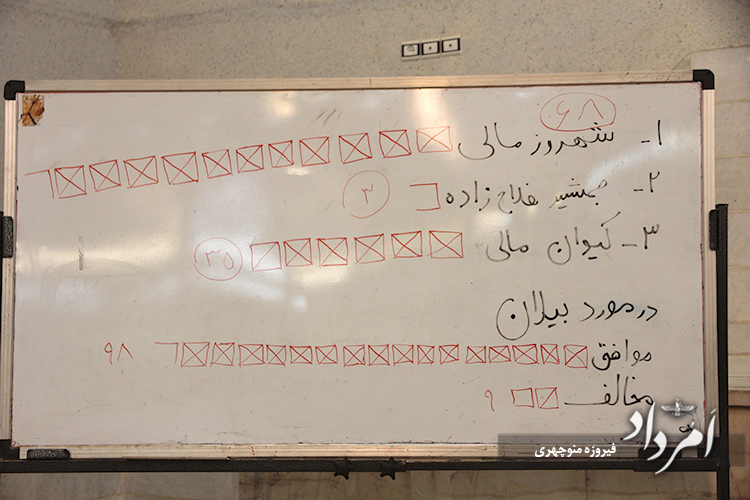 ۶۸
۱- شهروز مالی
۲- جمشید فلاح زاده ۳
۳- کیوان مالی ۳۵
در مورد بیلان
موافق ۹۸
مخالف ۹
اَمرداد
فیروزه منوچهری